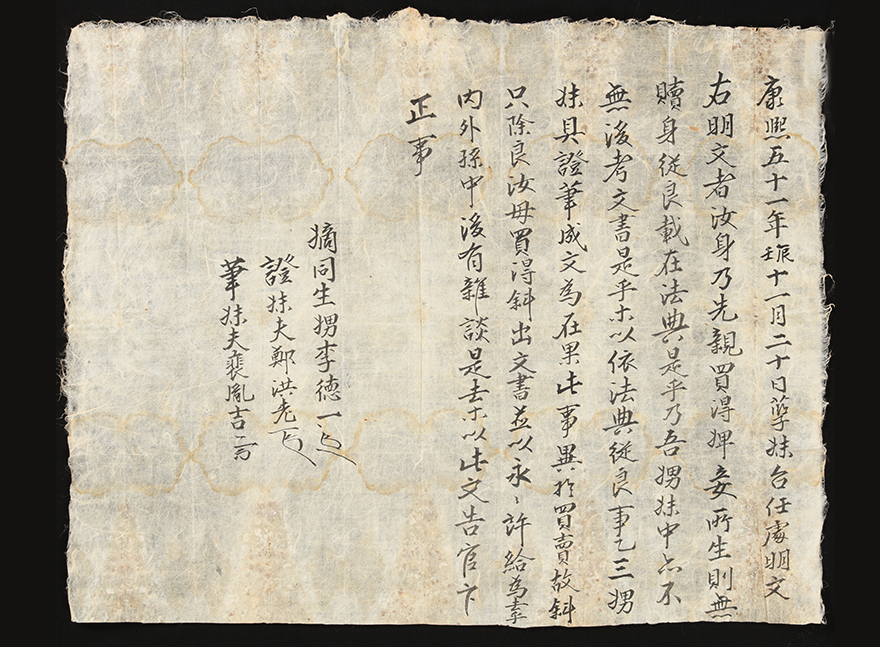 康熙五十一年壬辰十一月二十日孽妹台任處明文
右明文者汝身乃先親買得婢妾所生則無
贖身從良載在法典是乎乃吾娚妹中亦不
無後考文書是乎等以依法典從良事乙三娚
妹具證筆成文為在果此事異於買賣故斜
只除良汝母買得斜出文書並以永〻許給為乎
内外孫中後有雜談是去等以此文告官卞
正事
嫡同生娚李德一
證妹夫鄭洪老
筆妹夫裵胤吉